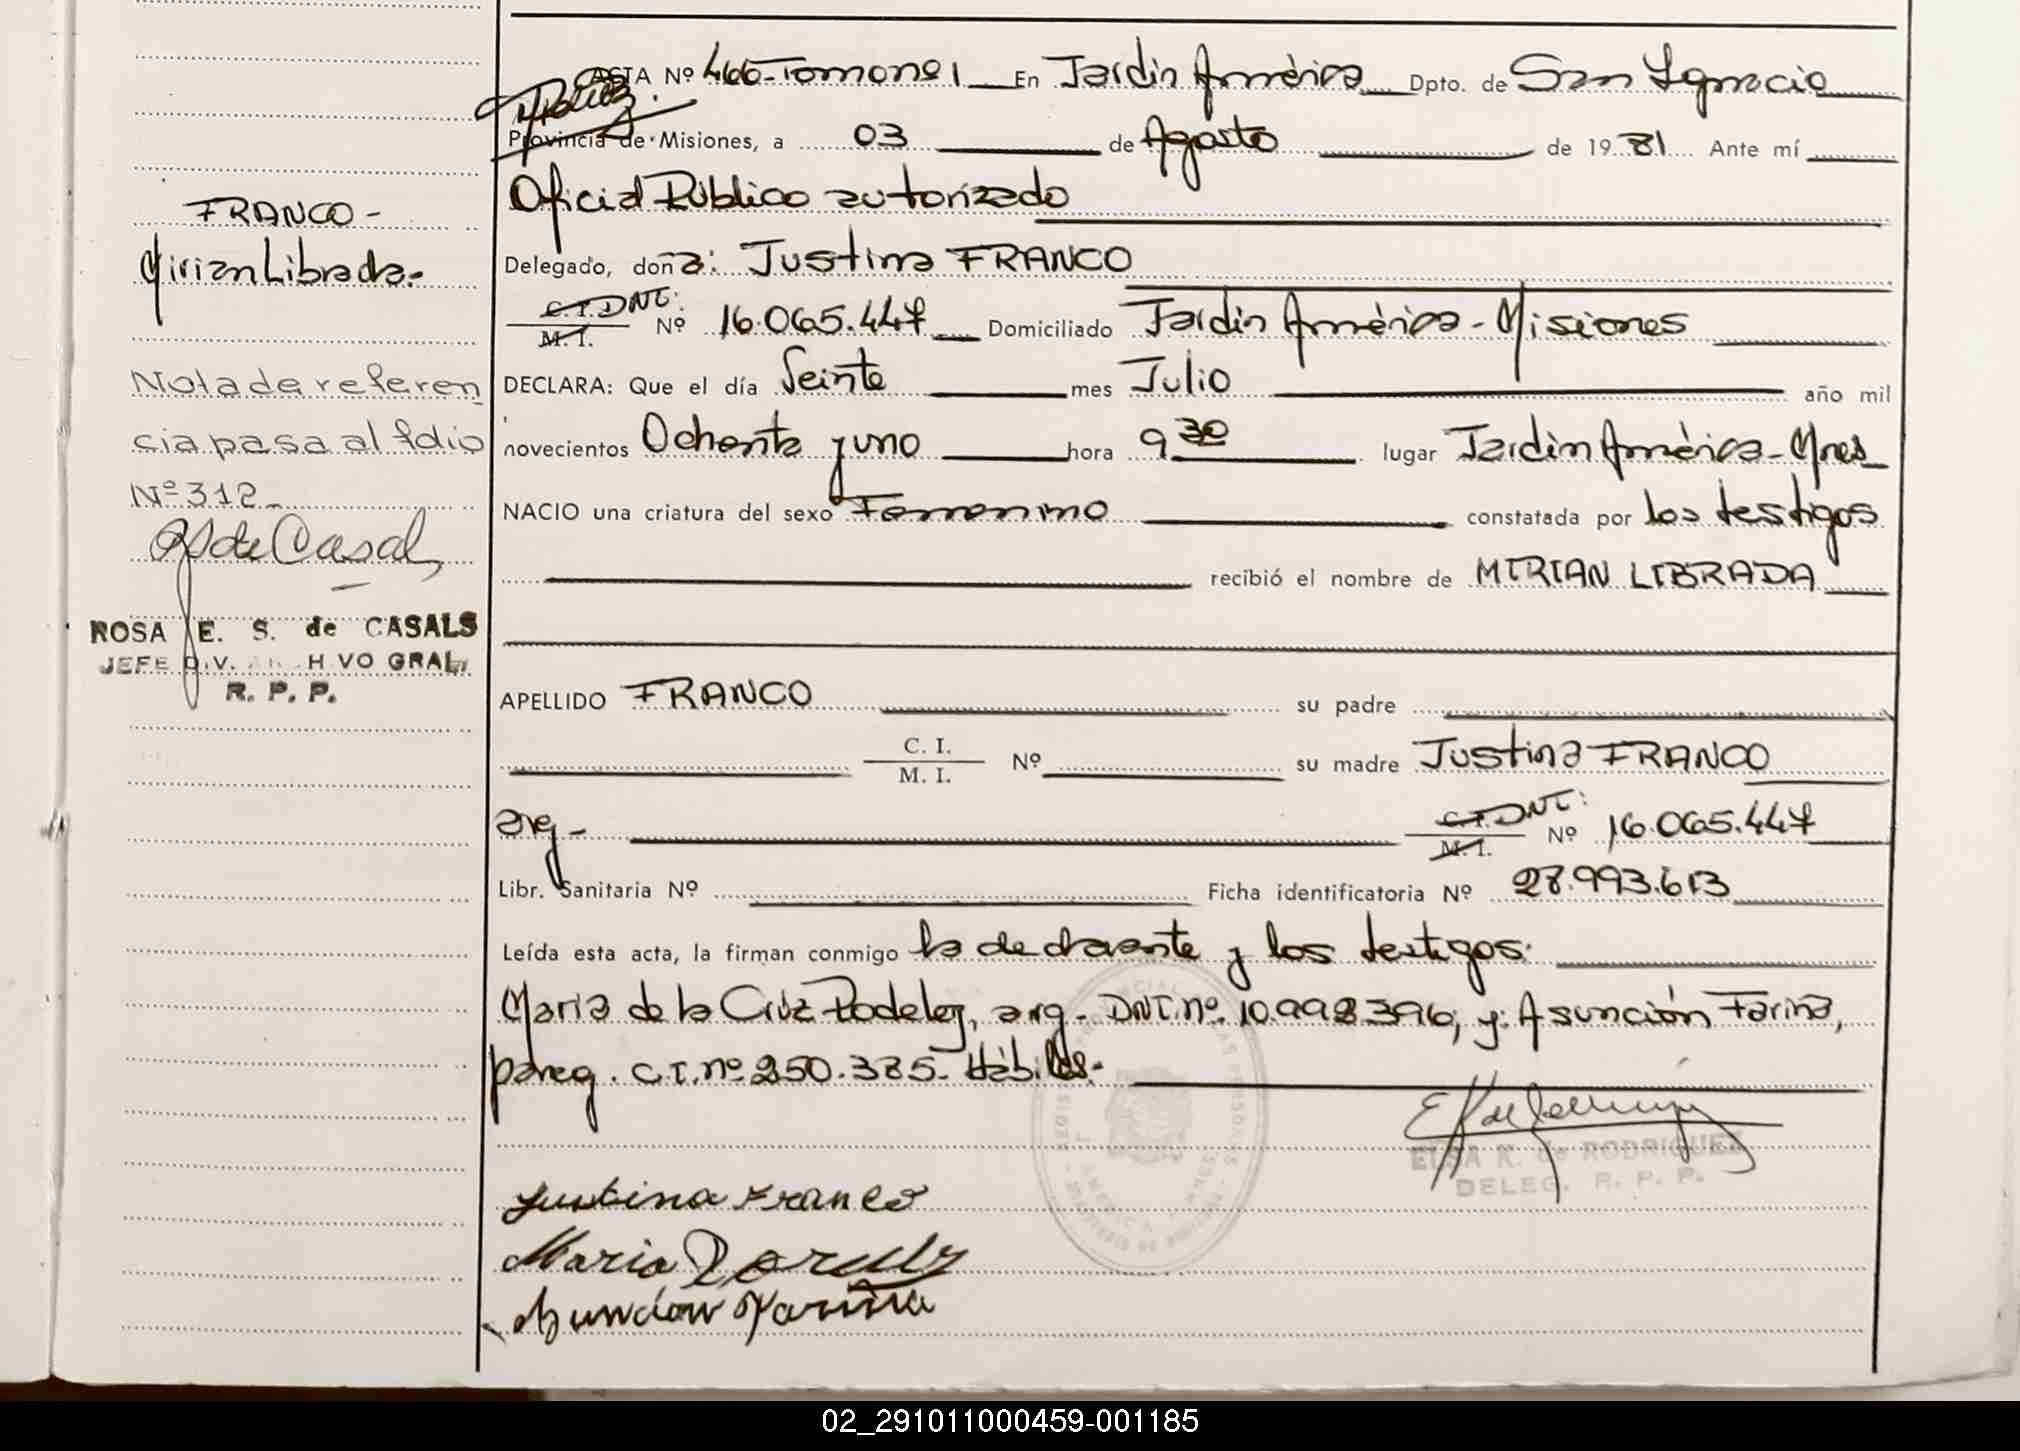 ACTA Nº 466-Tomo nº 1 En Jardín América Dpto. de San Ignacio
Provincia de Misiones, a 03 de Agosto de 1981 Ante mí
Oficial Público autorizado
Delegado, doña: Justina FRANCO
C.I. DNI: M. I. Nº 16.065.447 Domiciliado Jardín América - Misiones
DECLARA: Que el día Veinte mes Julio año mil
novecientos Ochenta y uno hora 9 30 lugar Jardín América - Mnes
NACIO una criatura del sexo Femenino constatada por los testigos
recibió el nombre de MIRIAN LIBRADA
APELLIDO FRANCO su padre
C. I. M. I. Nº su madre Justina FRANCO
arg - C.I. DNI: M. I. Nº 16.065.447
Libr. Sanitaria Nº Ficha identificatoria Nº 28.993.613
Leída esta acta, la firman conmigo la declarante y los testigos:
Maria de la Cruz arg. DNI. nº. 10.998.396, y: Asunción Farina,
pareg. C.I. nº 250.385. Hábiles.-
ELSA K. de RODRIGUEZ
DELEG. R. P. P.
Justina Franco
Maria
Asuncion Fariña
FRANCO -
Mirian Librada.-
Nota de referen
cia pasa al folio
Nº 312_
de Casals
ROSA E. S. de CASALS
JEFE DIV. ARCHIVO GRAL.
R. P. P.
02_291011000459-001185